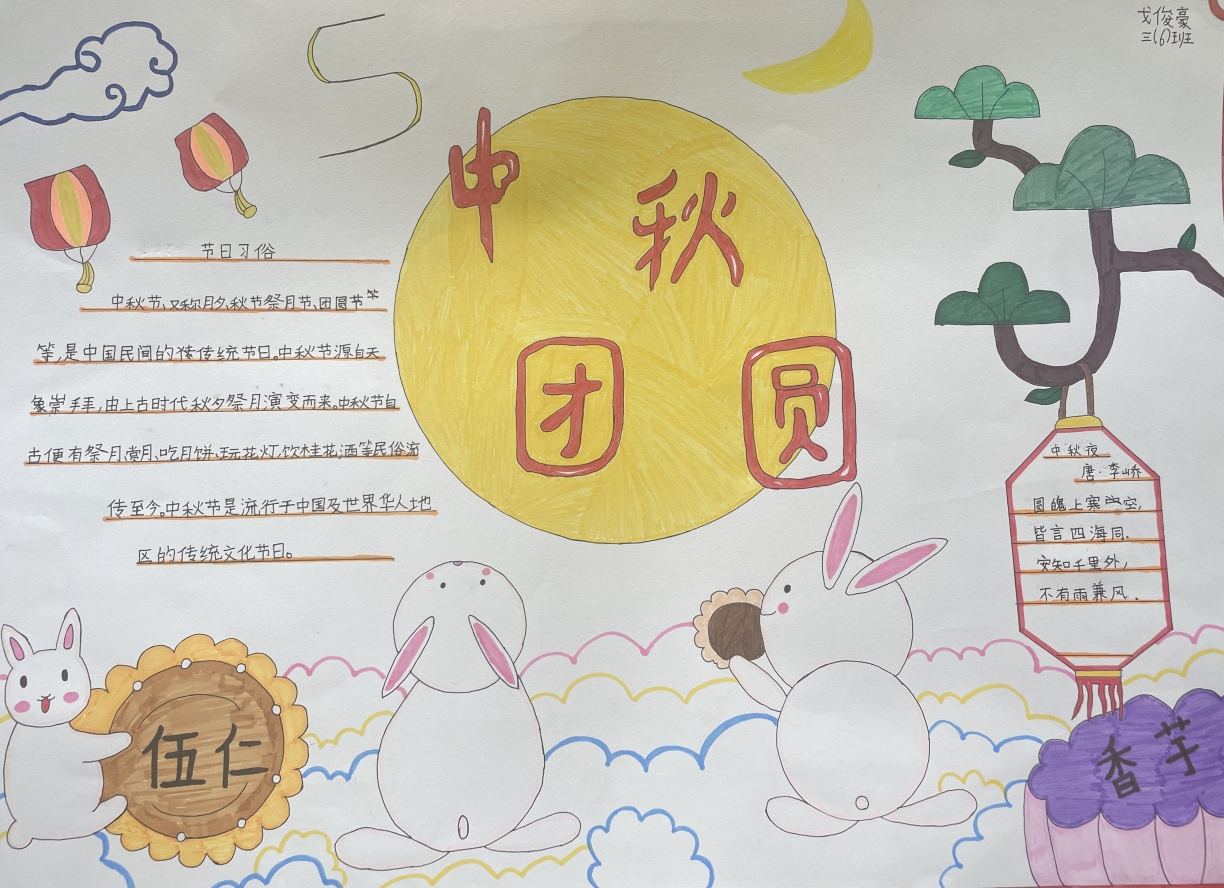 戈俊豪
三(6)班
中秋
团圆
节日习俗
中秋节、又称月夕、秋节祭月节、团圆节等
等,是中国民间的传传统节日。中秋节源自天
象崇拜,由上古时代秋夕祭月演变而来。中秋节自
古便有祭月、赏月、吃月饼、玩花灯、饮桂花酒等民俗流
传至今。中秋节是流行于中国及世界华人地
区的传统文化节日。
中秋夜
唐·李峤
圆魄上寒空,
皆言四海同.
安知千里外,
不有雨兼风.
伍仁
香芋